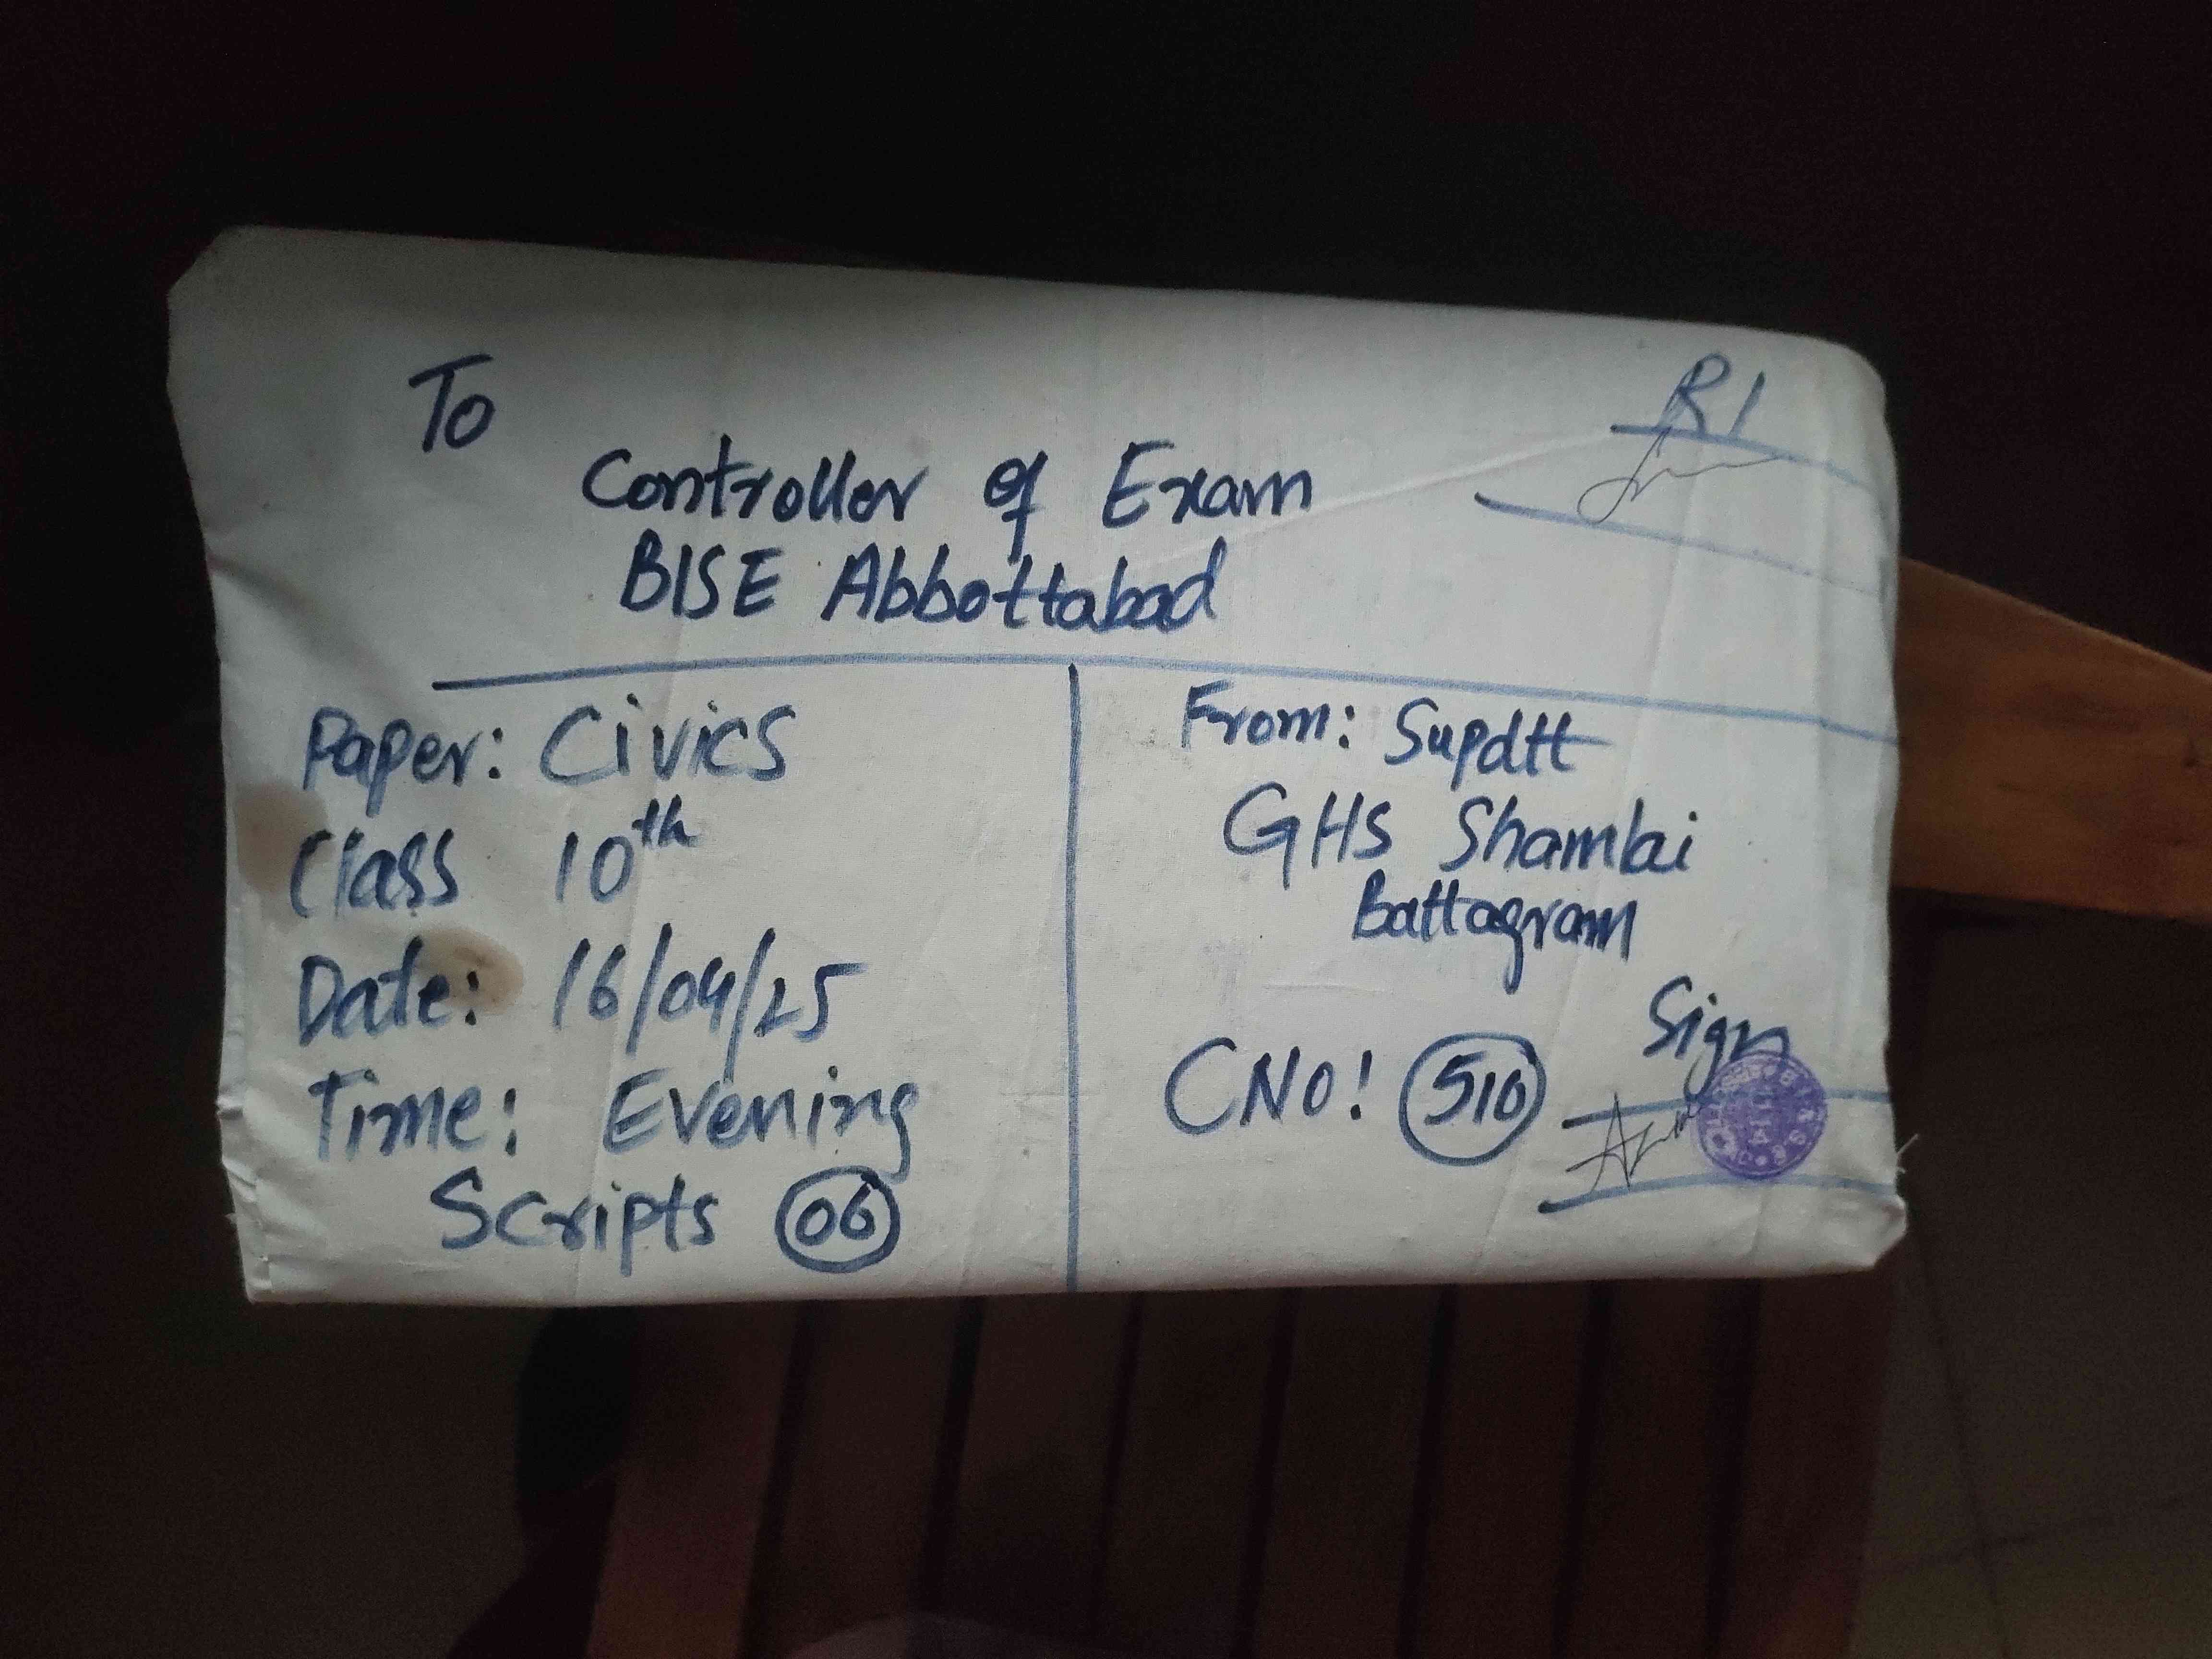 To
R1
Controller of Exam
BISE Abbottabad
Paper: Civics
Class 10th
Date: 16/04/25
Time: Evening
Scripts 06
From: Supdtt
GHS Shamlai
Battagram
CNO! 510
Sign